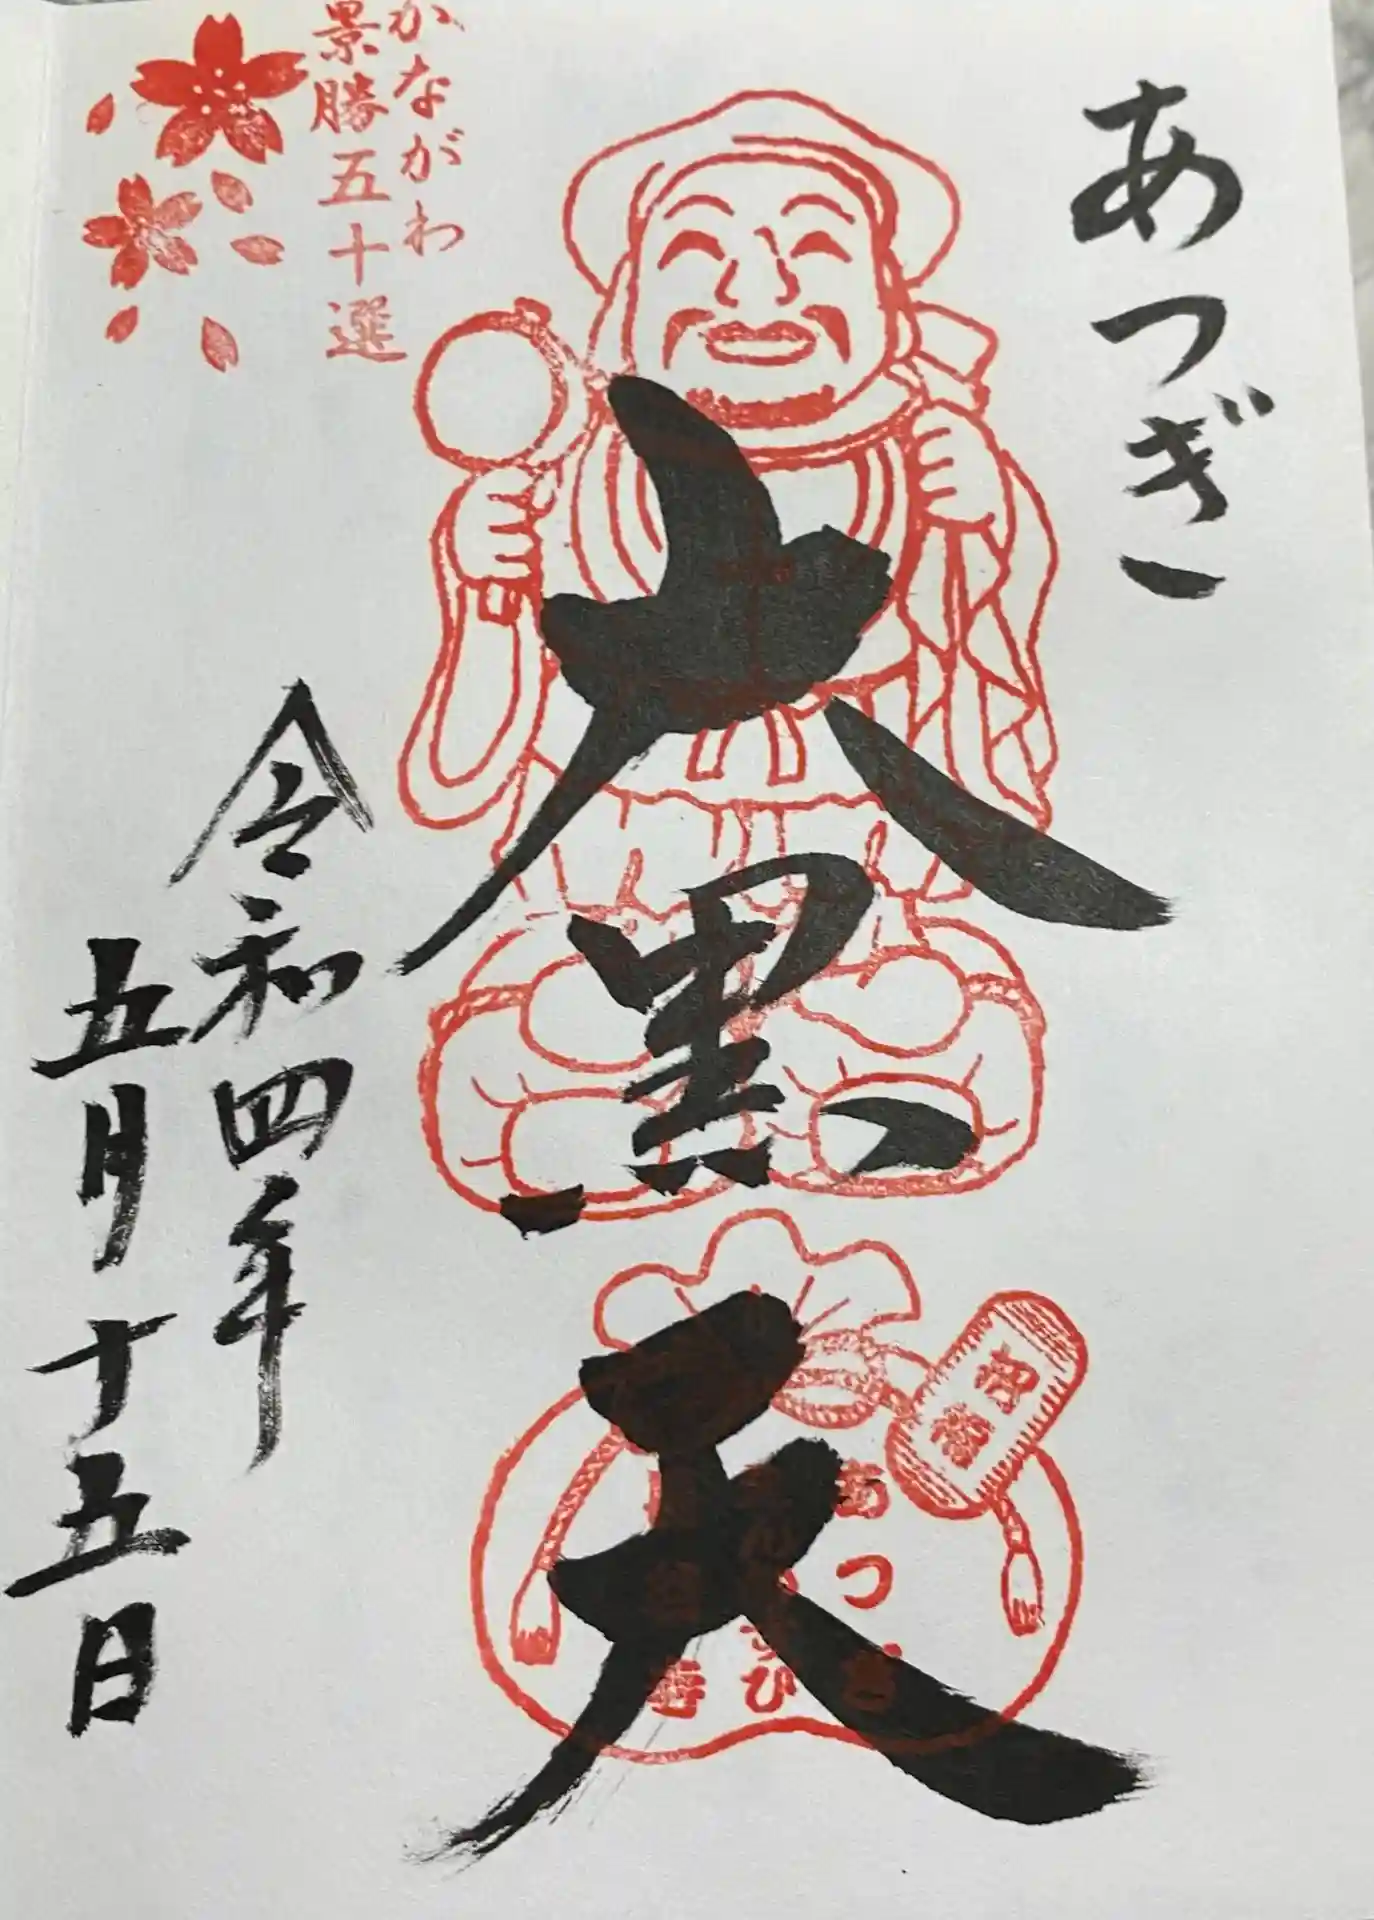 あつぎ
大黒天
令和四年
五月十五日
かながわ
景勝五十選
あつぎ